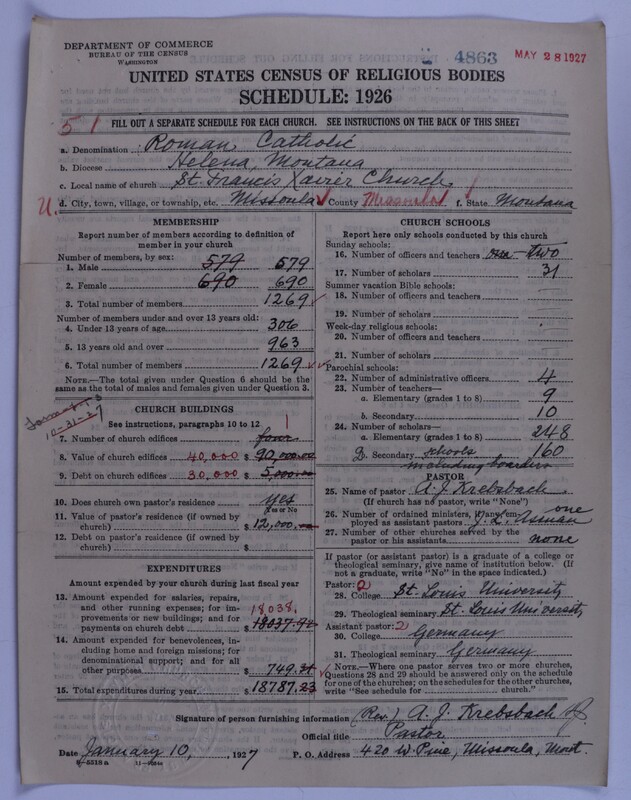 DEPARTMENT OF COMMERCE
BUREAU OF THE CENSUS
WASHINGTON
4863
MAY 28 1927
UNITED STATES CENSUS OF RELIGIOUS BODIES
SCHEDULE: 1926
51
FILL OUT A SEPARATE SCHEDULE FOR EACH CHURCH. SEE INSTRUCTIONS ON THE BACK OF THIS SHEET
a. Denomination Roman Catholic
b. Diocese Helena, Montana
c. Local name of church St. Francis Xavier Church
U. d. City, town, village, or township, etc. Missoula County Missoula f. State Montana
MEMBERSHIP
Report number of members according to definition of
member in your church
Number of members, by sex:
1. Male 579 579
2. Female 690 690
3. Total number of members 1269
Number of members under and over 13 years old:
4. Under 13 years of age 306
5. 13 years old and over 963
6. Total number of members 1269
NOTE.—The total given under Question 6 should be the
same as the total of males and females given under Question 3.
10-31-27
CHURCH BUILDINGS
See instructions, paragraphs 10 to 12
1
7. Number of church edifices four
8. Value of church edifices 40,000 $ 90,000.00
9. Debt on church edifices 30,000 $ 5,000.00
10. Does church own pastor's residence yes
Yes or No
11. Value of pastor's residence (if owned by
church) $ 12,000.
12. Debt on pastor's residence (if owned by
church) $
EXPENDITURES
Amount expended by your church during last fiscal year
13. Amount expended for salaries, repairs,
and other running expenses; for im-
provements or new buildings; and for 18038.
payments on church debt $ 18037.92
14. Amount expended for benevolences, in-
cluding home and foreign missions; for
denominational support; and for all
other purposes $ 749.31
15. Total expenditures during year $ 18787.23
CHURCH SCHOOLS
Report here only schools conducted by this church
Sunday schools:
16. Number of officers and teachers one two
17. Number of scholars 31
Summer vacation Bible schools:
18. Number of officers and teachers
19. Number of scholars
Week-day religious schools:
20. Number of officers and teachers
21. Number of scholars
Parochial schools:
22. Number of administrative officers 4
23. Number of teachers—
a. Elementary (grades 1 to 8) 9
b. Secondary 10
24. Number of scholars—
a. Elementary (grades 1 to 8) 248
b. Secondary schools 160
including boarders
PASTOR
25. Name of pastor A. J. Krebsbach
(If church has no pastor, write "None")
26. Number of ordained ministers, if any, em- one
ployed as assistant pastors
27. Number of other churches served by the
pastor or his assistants none
If pastor (or assistant pastor) is a graduate of a college or
theological seminary, give name of institution below. (If
not a graduate, write "No" in the space indicated.)
Pastor: 2
28. College St. Louis University
29. Theological seminary St. Louis University
Assistant pastor: 2
30. College Germany
31. Theological seminary Germany
NOTE.—Where one pastor serves two or more churches,
Questions 28 and 29 should be answered only on the schedule
for one of the churches; on the schedules for the other churches,
write "See schedule for church."
Signature of person furnishing information (Rev.) A. J. Krebsbach S.J.
Official title Pastor
Date January 10, 1927 P. O. Address 420 W. Pine, Missoula, Mont.
8-5518a